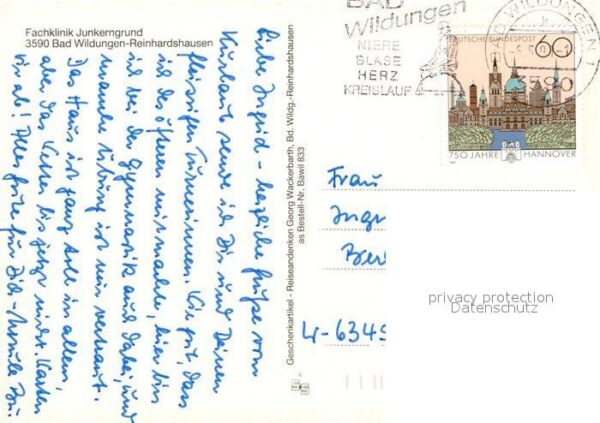 Fachklinik Junkerngrund
3590 Bad Wildungen-Reinhardshausen
Liebe Ingrid – herzliche Grüße vom
Kurlaub sende ich Dir und Deinen
fleissigen Turnerinnen. Wie gut, dass
ich des öfteren mitmachte, hier bin
ich bei der Gymnastik auch dabei, und
manche Übung ist mir vertraut.
Das Haus ist ganz toll in allem,
aber das Wetter bis jetzt nicht. Karten
Alles Gute für Dich –
Geschenkartikel - Reiseandenken Georg Wackerbarth, Bd. Wildg.-Reinhardshausen
as Bestell-Nr. Bawil 833
BAD
Wildungen
NIERE
BLASE
HERZ
KREISLAUF
BAD WILDUNGEN 1
3590
DEUTSCHE BUNDESPOST
60
750 JAHRE HANNOVER
Frau
Ingr
Ber
W-6349
privacy protection
Datenschutz